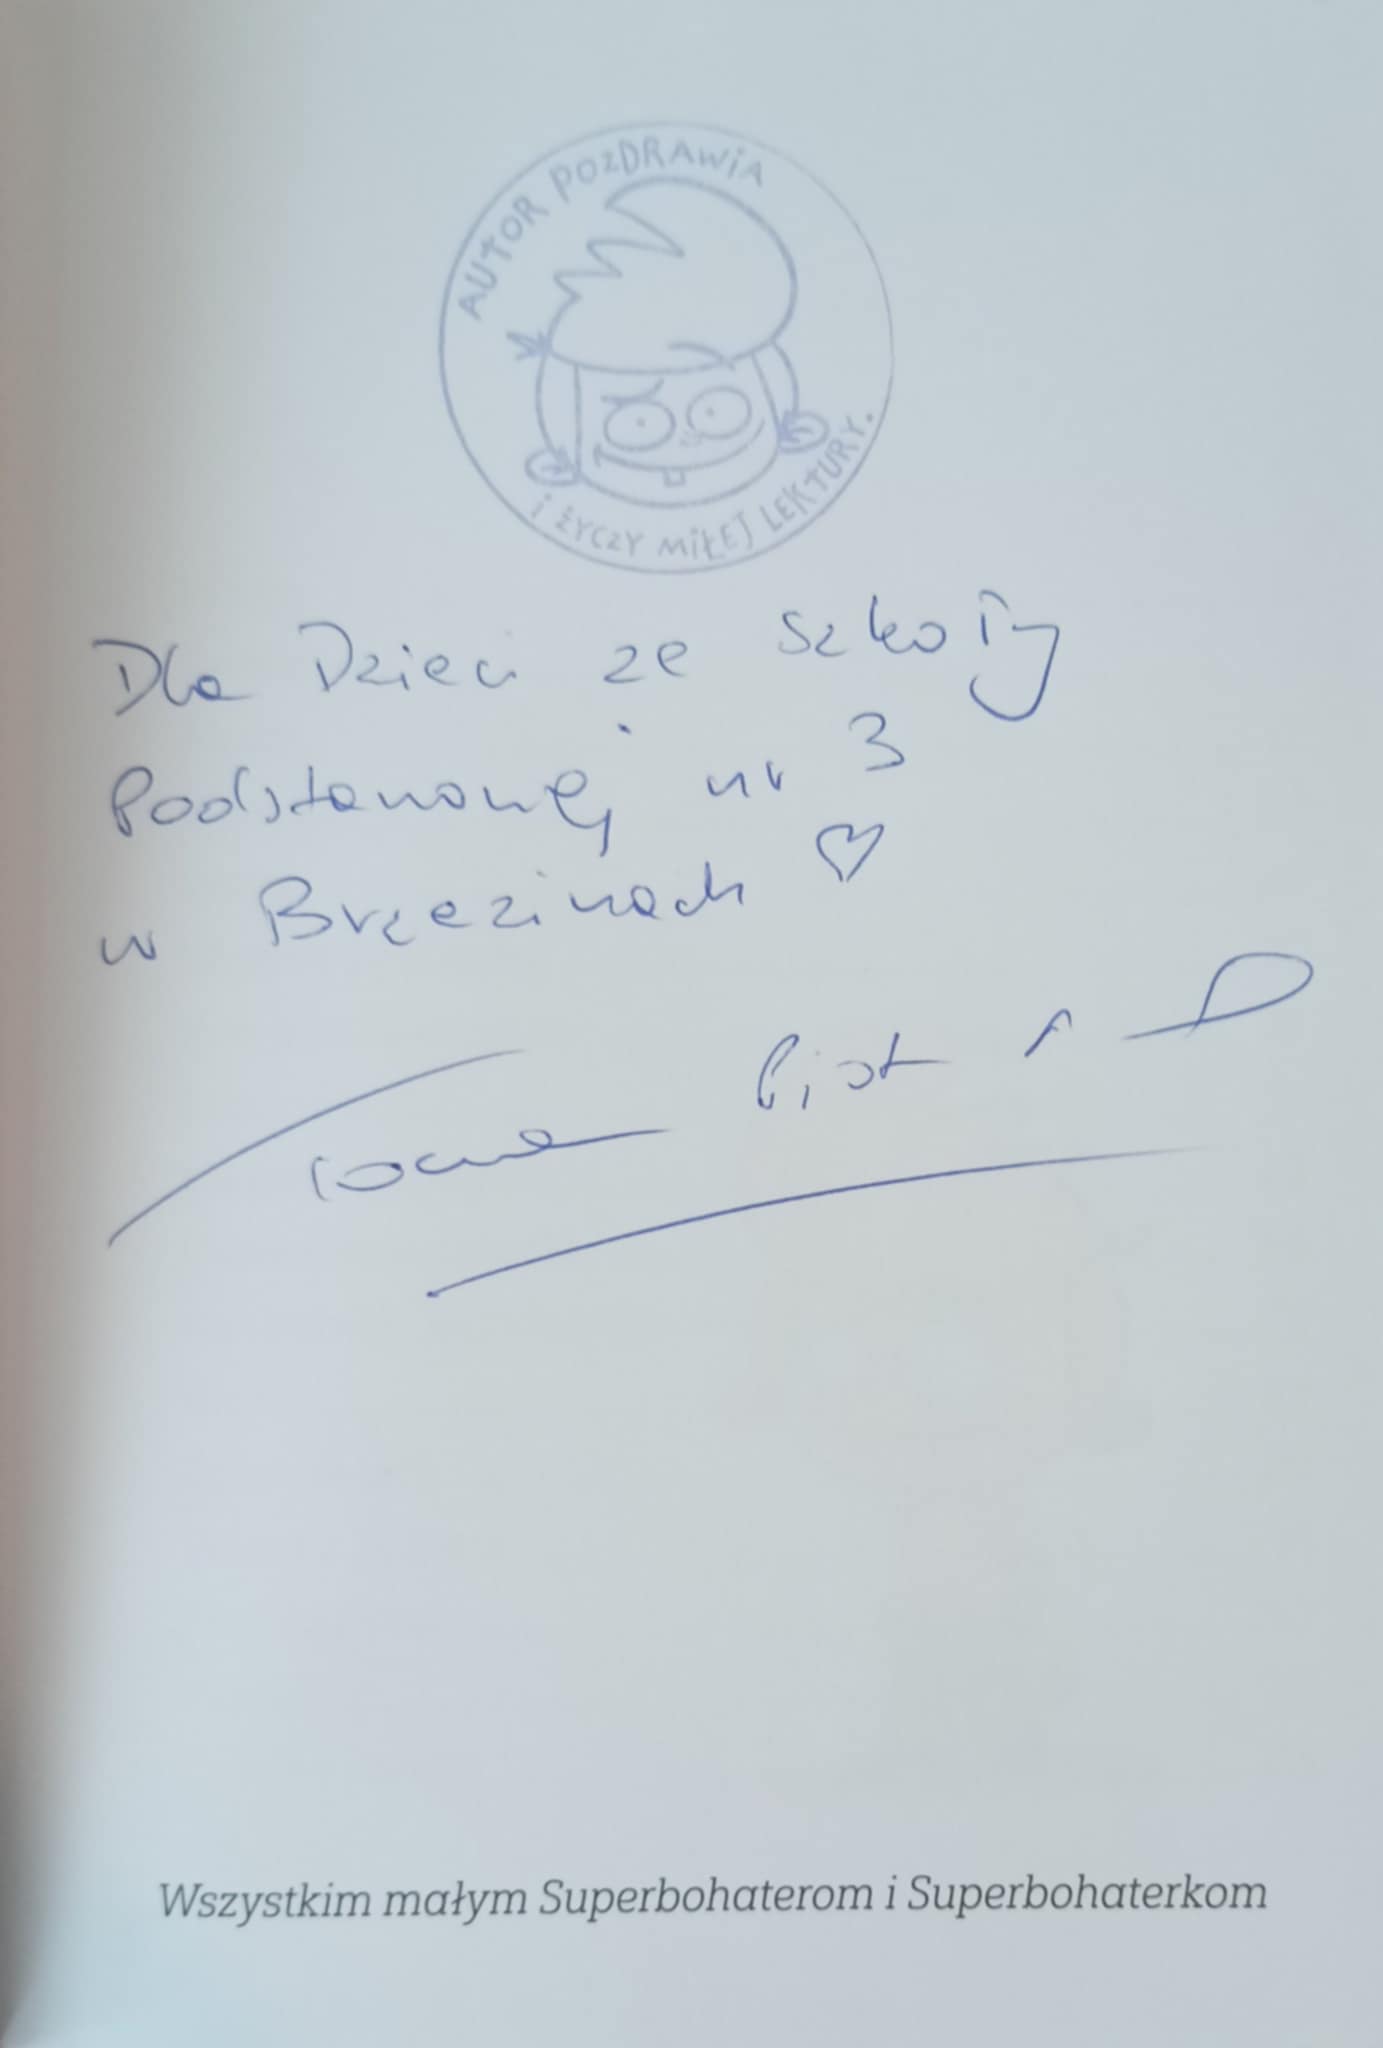 AUTOR POZDRAWIA
i ŻYCZY MIŁEJ LEKTURY.
Dla Dzieci ze szkoły
Podstawowej nr 3
w Brzezinach ♡
Wszystkim małym Superbohaterom i Superbohaterkom